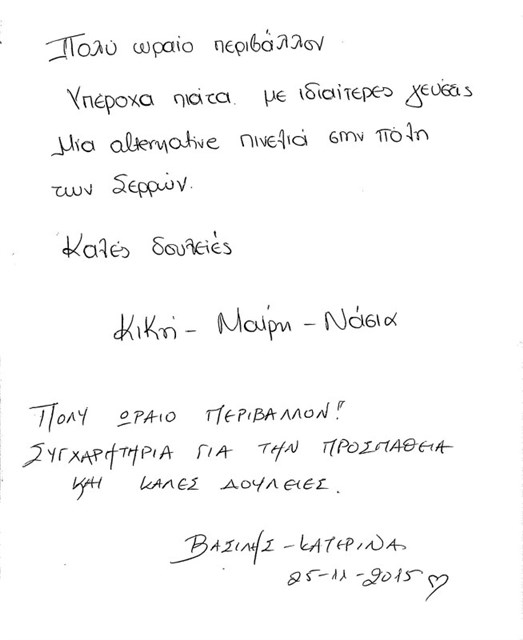 Πολύ ωραίο περιβάλλον
Υπέροχα πιάτα με ιδιαίτερες γεύσεις
Μία alternative πινελιά στην πόλη
των Σερρών.
Καλές δουλειές
Κική - Μαίρη - Νάσια
ΠΟΛΥ ΩΡΑΙΟ ΠΕΡΙΒΑΛΛΟΝ!
ΣΥΓΧΑΡΗΤΗΡΙΑ ΓΙΑ ΤΗΝ ΠΡΟΣΠΑΘΕΙΑ
ΚΑΙ ΚΑΛΕΣ ΔΟΥΛΕΙΕΣ.
ΒΑΣΙΛΗΣ - ΚΑΤΕΡΙΝΑ
25-11-2015 ♡